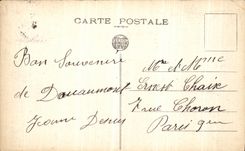 CARTE POSTALE
Bon Souvenir
de Douaumont
Jeanne
Mr et Mme
Ernest Chaix
7 rue Choron
Paris 9em